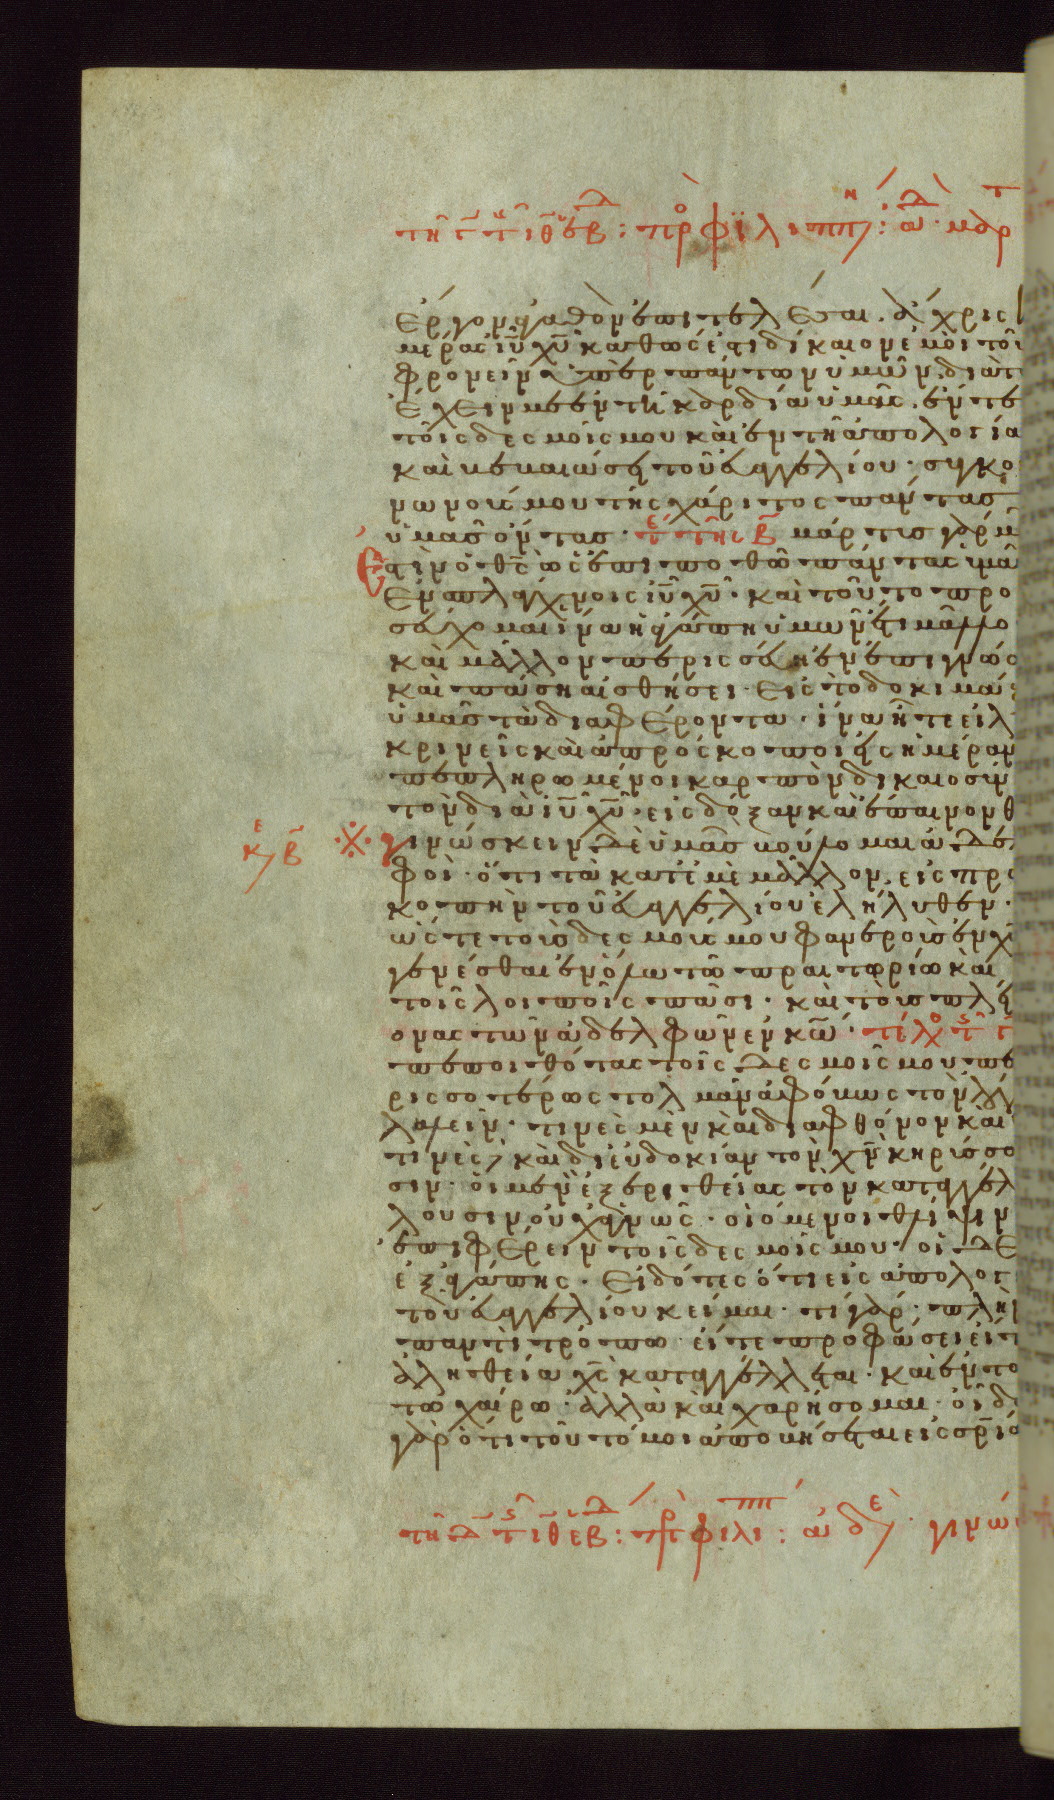 ἔργον ἀγαθὸν ἐπιτελέσαι. ἄχρις
μέρας ἰυ χυ καθὼς ἐστι δίκαιον ἐμοὶ τοῦ
φρονεῖν ὑπὲρ πάντων ὑμῶν, διὰ τ
ἔχειν με ἐν τῆ καρδία ὑμᾶς. ἔν τε
τοῖς δεσμοῖς μου καὶ ἐν τῆ ἀπολογία
καὶ βεβαιώσει τοῦ εὐαγγελίου. συγκο
νωνούς μου τῆς χάριτος πάντας
ὑμᾶς ὄντας. τῆς β μάρτυς γάρ μ
ἐστιν ὁ θς ὡς ἐπιποθῶ πάντας ὑμᾶ
ἐν σπλάγχνοις ἰυ χυ. καὶ τοῦτο προ
σεύχομαι ἵνα ἡ ἀγάπη ὑμῶν ἔτι μᾶλλο
καὶ μᾶλλον περισσεύη ἐν ἐπιγνώσ
καὶ πάση αἰσθήσει. εἰς τὸ δοκιμάζ
ὑμᾶς τὰ διαφέροντα. ἵνα ἦτε εἰλ
κρινεῖς καὶ ἀπρόσκοποι εἰς ἡμέραν
πεπληρωμένοι καρπὸν δικαιοσύν
τὸν διὰ ἰυ χυ. εἰς δόξαν καὶ ἔπαινον θ
κε β ※ γινώσκειν δὲ ὑμᾶς βούλομαι ἀδελ
φοὶ. ὅτι τὰ κατ' ἐμὲ μᾶλλον, εἰς προ
κοπὴν τοῦ εὐαγγελίου ἐλήλυθεν.
ὥστε τοὺς δεσμούς μου φανεροὺς ἐν χω
γενέσθαι ἐν ὅλω τῶ πραιτωρίω καὶ
τοῖς λοιποῖς πᾶσι. καὶ τοὺς πλεί
ονας τῶν ἀδελφῶν ἐν κω. τέλος
πεποιθότας τοῖς δεσμοῖς μου πε
ρισσοτέρως τολμᾶν ἀφόβως τὸν λόγ
λαλεῖν. τινὲς μὲν καὶ διὰ φθόνον καὶ
τινὲς καὶ δι' εὐδοκίαν τὸν χν κηρύσσου
σιν. οἱ μὲν ἐξ ἐριθείας τὸν καταγγέλ
λουσιν οὐχ ἁγνῶς. οἰόμενοι θλίψιν
ἐπιφέρειν τοῖς δεσμοῖς μου. οἱ δὲ
ἐξ ἀγάπης. εἰδότες ὅτι εἰς ἀπολογ
τοῦ εὐαγγελίου κεῖμαι. τί γάρ. πλὴν
παντὶ τρόπω εἴτε προφάσει εἴτ
ἀληθεία χς καταγγέλλεται. καὶ ἐν το
τω χαίρω. ἀλλὰ καὶ χαρήσομαι. οἶδ
γὰρ ὅτι τοῦτό μοι ἀποβήσεται εἰς σρία